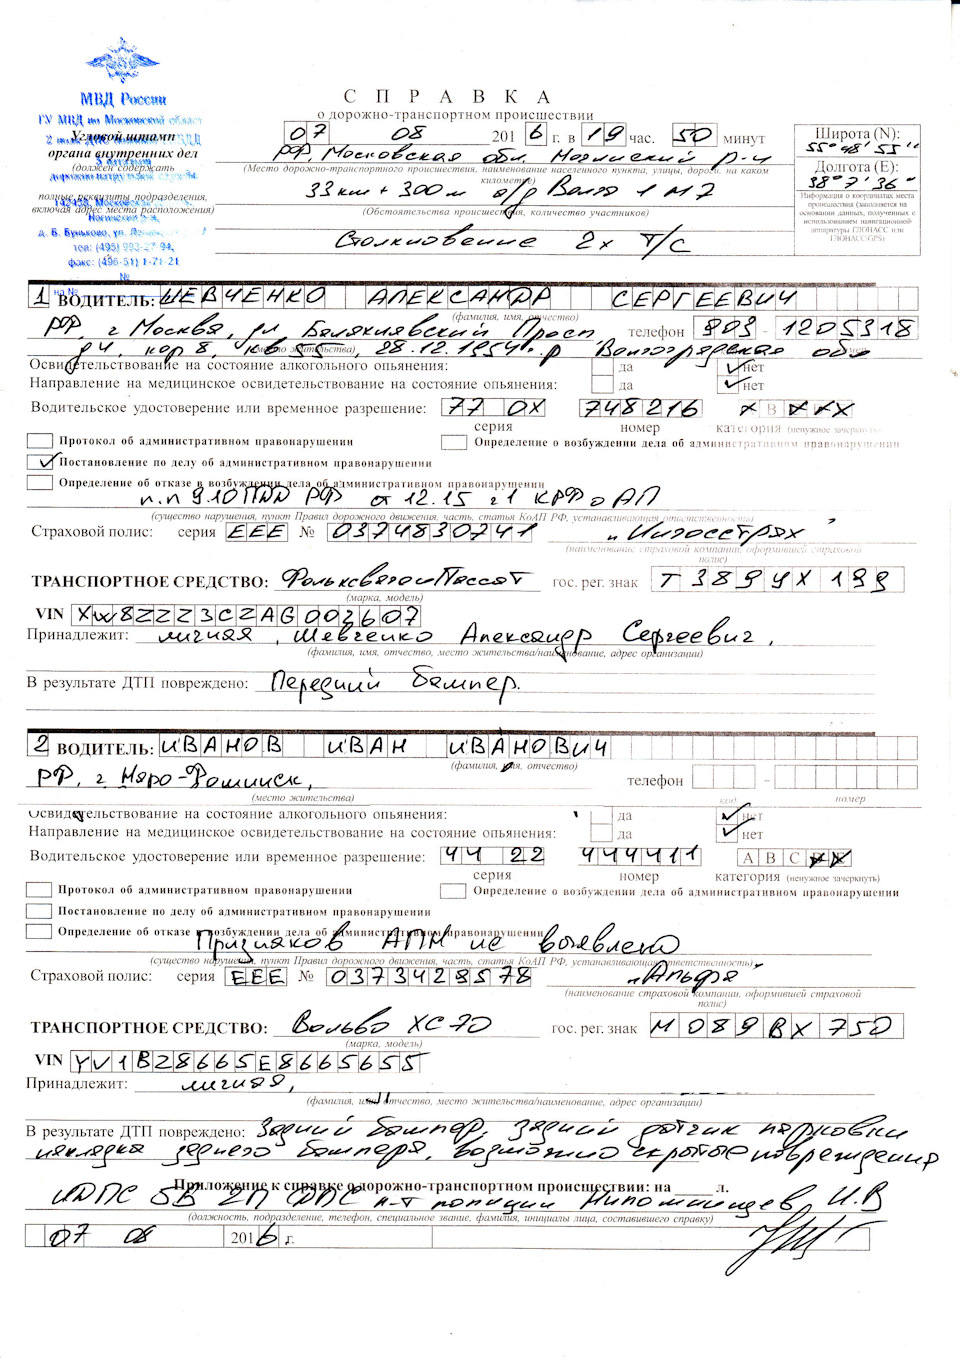 МВД России
ГУ МВД по Московской област
СПРАВКА
о дорожно-транспортном происшествии
Угловой штамп
органа внутренних дел
(должен содержать
полные реквизиты подразделения,
включая адрес места расположения)
142438, Московская
Ногинский р-н,
д. Б. Буньково, ул. Лен
тел: (495) 993-27-94,
факс: (496-51) 1-71-21
№
на №
07 08 2016 г. в 19 час. 50 минут
РФ, Московская обл. Ногинский р-н
(Место дорожно-транспортного происшествия, наименование населенного пункта, улицы, дороги, на каком
километре)
33 км + 300 м а/д Волга 1 М7
(Обстоятельства происшествия, количество участников)
Столкновение 2х Т/С
Широта (N):
55° 48' 55"
Долгота (E):
38° 7' 36"
Информация о координатах места
происшествия (заполняется на
основании данных, полученных с
использованием навигационной
аппаратуры ГЛОНАСС или
ГЛОНАСС/GPS)
1 ВОДИТЕЛЬ: ШЕВЧЕНКО АЛЕКСАНДР СЕРГЕЕВИЧ
(фамилия, имя, отчество)
РФ, г Москва, ул Балаклавский Просп, телефон 903 - 1205318
д 4, кор 8, кв 55, 28.12.1954 г.р Волгоградская обл
(место жительства)
Освидетельствование на состояние алкогольного опьянения: да нет
Направление на медицинское освидетельствование на состояние опьянения: да нет
Водительское удостоверение или временное разрешение: 77 ОХ 748216 В
серия номер категория (ненужное зачеркнуть)
Протокол об административном правонарушении
Определение о возбуждении дела об административном правонарушении
Постановление по делу об административном правонарушении
Определение об отказе в возбуждении дела об административном правонарушении
п.п 9.10 ПДД РФ ст 12.15 ч 1 КРФоАП
(существо нарушения, пункт Правил дорожного движения, часть, статья КоАП РФ, устанавливающая ответственность)
Страховой полис: серия ЕЕЕ № 0374830741 „Ингосстрах"
(наименование страховой компании, оформившей страховой
полис)
ТРАНСПОРТНОЕ СРЕДСТВО: Фольксваген Пассат гос. рег. знак Т389УХ199
(марка, модель)
VIN XW8ZZZ3CZAG002607
Принадлежит: личная, Шевченко Александр Сергеевич,
(фамилия, имя, отчество, место жительства/наименование, адрес организации)
В результате ДТП повреждено: Передний бампер.
2 ВОДИТЕЛЬ: ИВАНОВ ИВАН ИВАНОВИЧ
(фамилия, имя, отчество)
РФ, г Наро-Фоминск, телефон
(место жительства) код номер
Освидетельствование на состояние алкогольного опьянения: да нет
Направление на медицинское освидетельствование на состояние опьянения: да нет
Водительское удостоверение или временное разрешение: 44 22 444411 А В С
серия номер категория (ненужное зачеркнуть)
Протокол об административном правонарушении
Определение о возбуждении дела об административном правонарушении
Постановление по делу об административном правонарушении
Определение об отказе в возбуждении дела об административном правонарушении
Признаков АПН не выявлено
(существо нарушения, пункт Правил дорожного движения, часть, статья КоАП РФ, устанавливающая ответственность)
Страховой полис: серия ЕЕЕ № 0373429578 „Альфа"
(наименование страховой компании, оформившей страховой
полис)
ТРАНСПОРТНОЕ СРЕДСТВО: Вольво ХС-70 гос. рег. знак М089ВХ750
(марка, модель)
VIN YV1BZ8665E8665655
Принадлежит: личная,
(фамилия, имя, отчество, место жительства/наименование, адрес организации)
В результате ДТП повреждено: Задний бампер, задний датчик парковки
накладка заднего бампера, возможно скрытые повреждения
Приложение к справке о дорожно-транспортном происшествии: на л.
ИДПС 5Б 2П ДПС л-т полиции Нипоманцев И.В
(должность, подразделение, телефон, специальное звание, фамилия, инициалы лица, составившего справку)
07 08 2016 г.